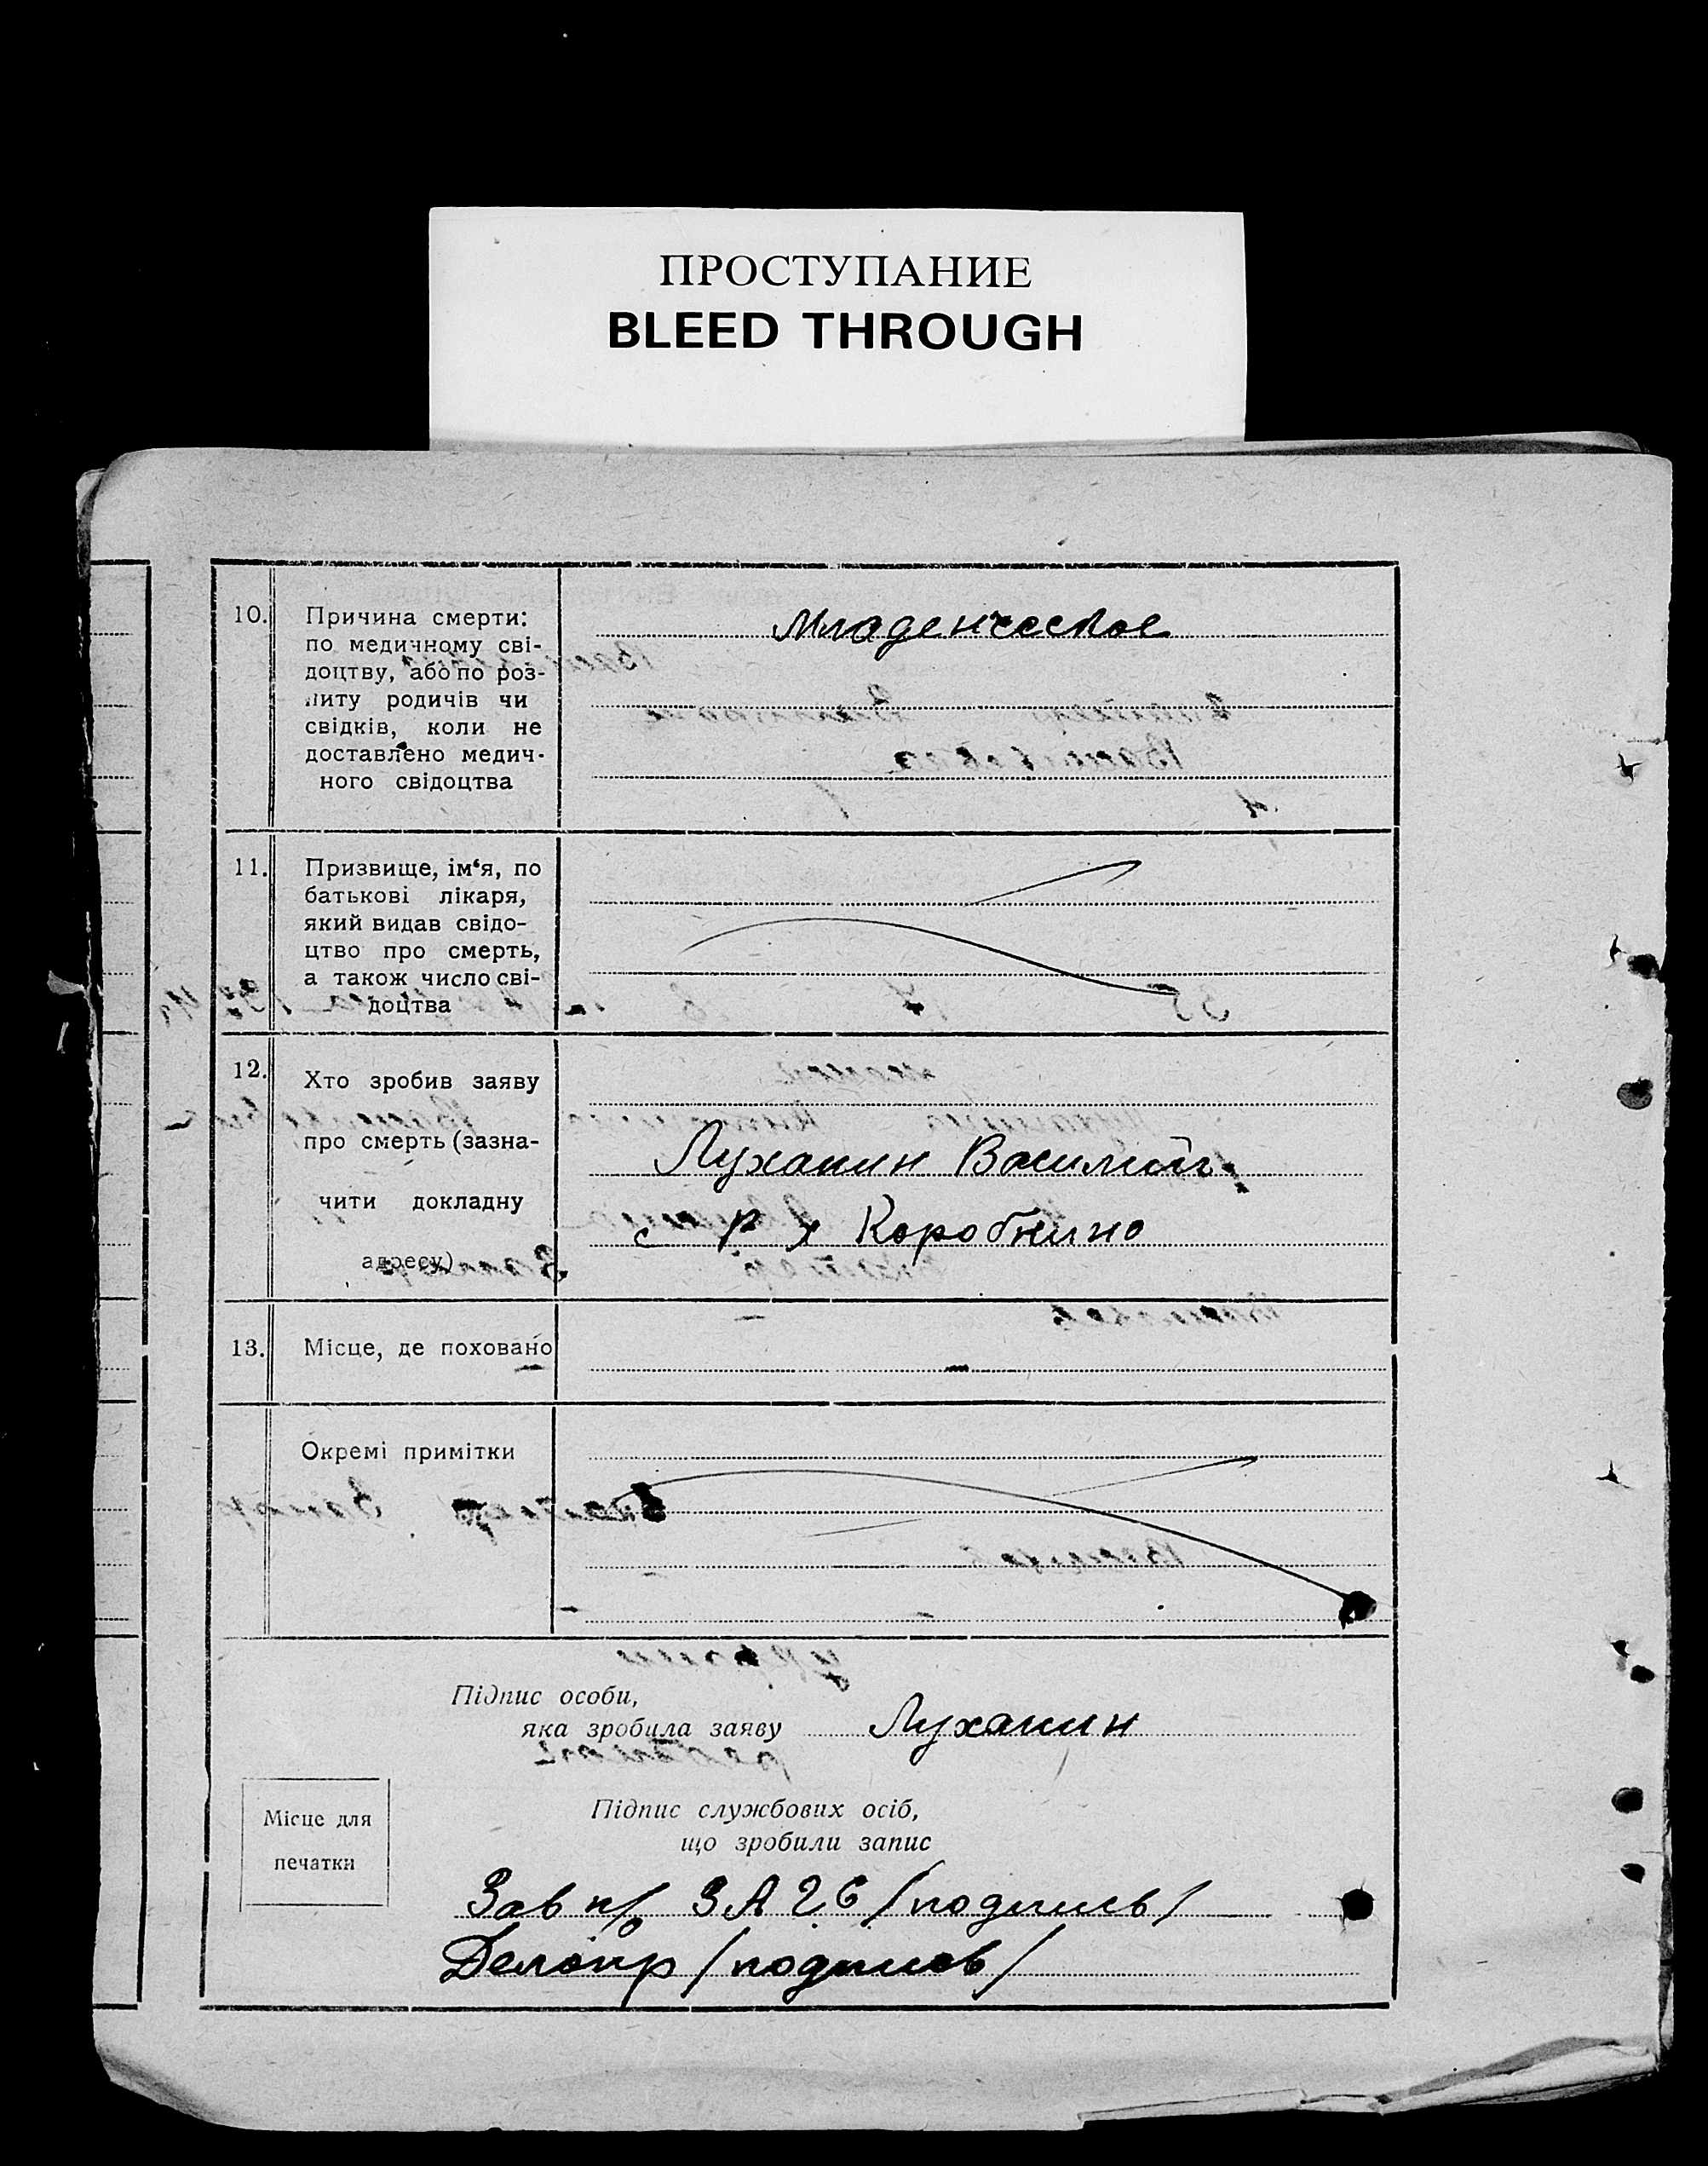 ПРОСТУПАНИЕ
BLEED THROUGH
10. Причина смерти: Младенческое
по медичному сві-
доцтву, або по роз-
питу родичів чи
свідків, коли не
доставлено медич-
ного свідоцтва
11. Призвище, ім‘я, по
батькові лікаря,
який видав свідо-
цтво про смерть,
а також число сві-
доцтва
12. Хто зробив заяву
про смерть (зазна- Луханин Василий
чити докладну
с Р х Коробкино
адресу)
13. Місце, де поховано —
Окремі примітки
Підпис особи,
яка зробила заяву Луханин
Місце для
печатки
Підпис службових осіб,
що зробили запис
Зав п/о ЗАГС /подпись/
Делопр /подпись/